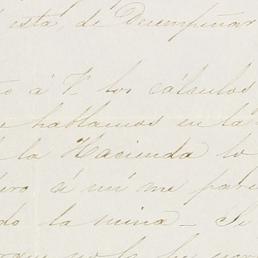 esta de Desempeñar
to á V los cálculos
hablamos en la
la Hacienda lo
á mí me pare
do la mina - Si